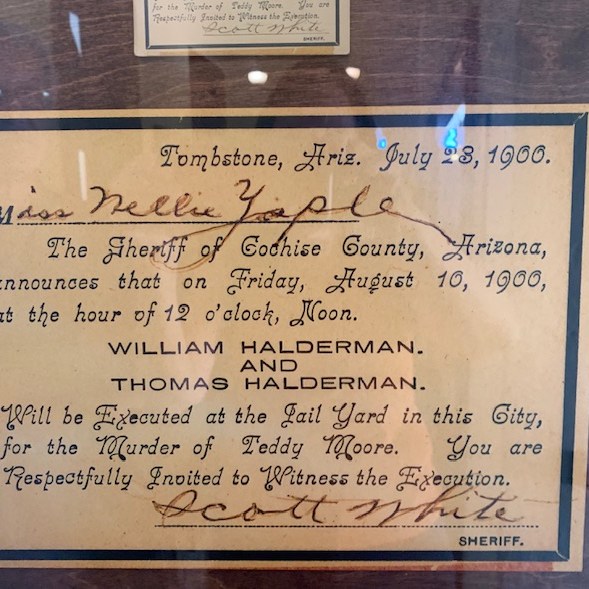 for the Murder of Teddy Moore. You are
Respectfully Invited to Witness the Execution.
Scott White
SHERIFF.
Tombstone, Ariz. July 23, 1900.
Miss Nellie Yaple
The Sheriff of Cochise County, Arizona,
announces that on Friday, August 10, 1900,
at the hour of 12 o'clock, Noon.
WILLIAM HALDERMAN.
AND
THOMAS HALDERMAN.
Will be Executed at the Jail Yard in this City,
for the Murder of Teddy Moore. You are
Respectfully Invited to Witness the Execution.
Scott White
SHERIFF.